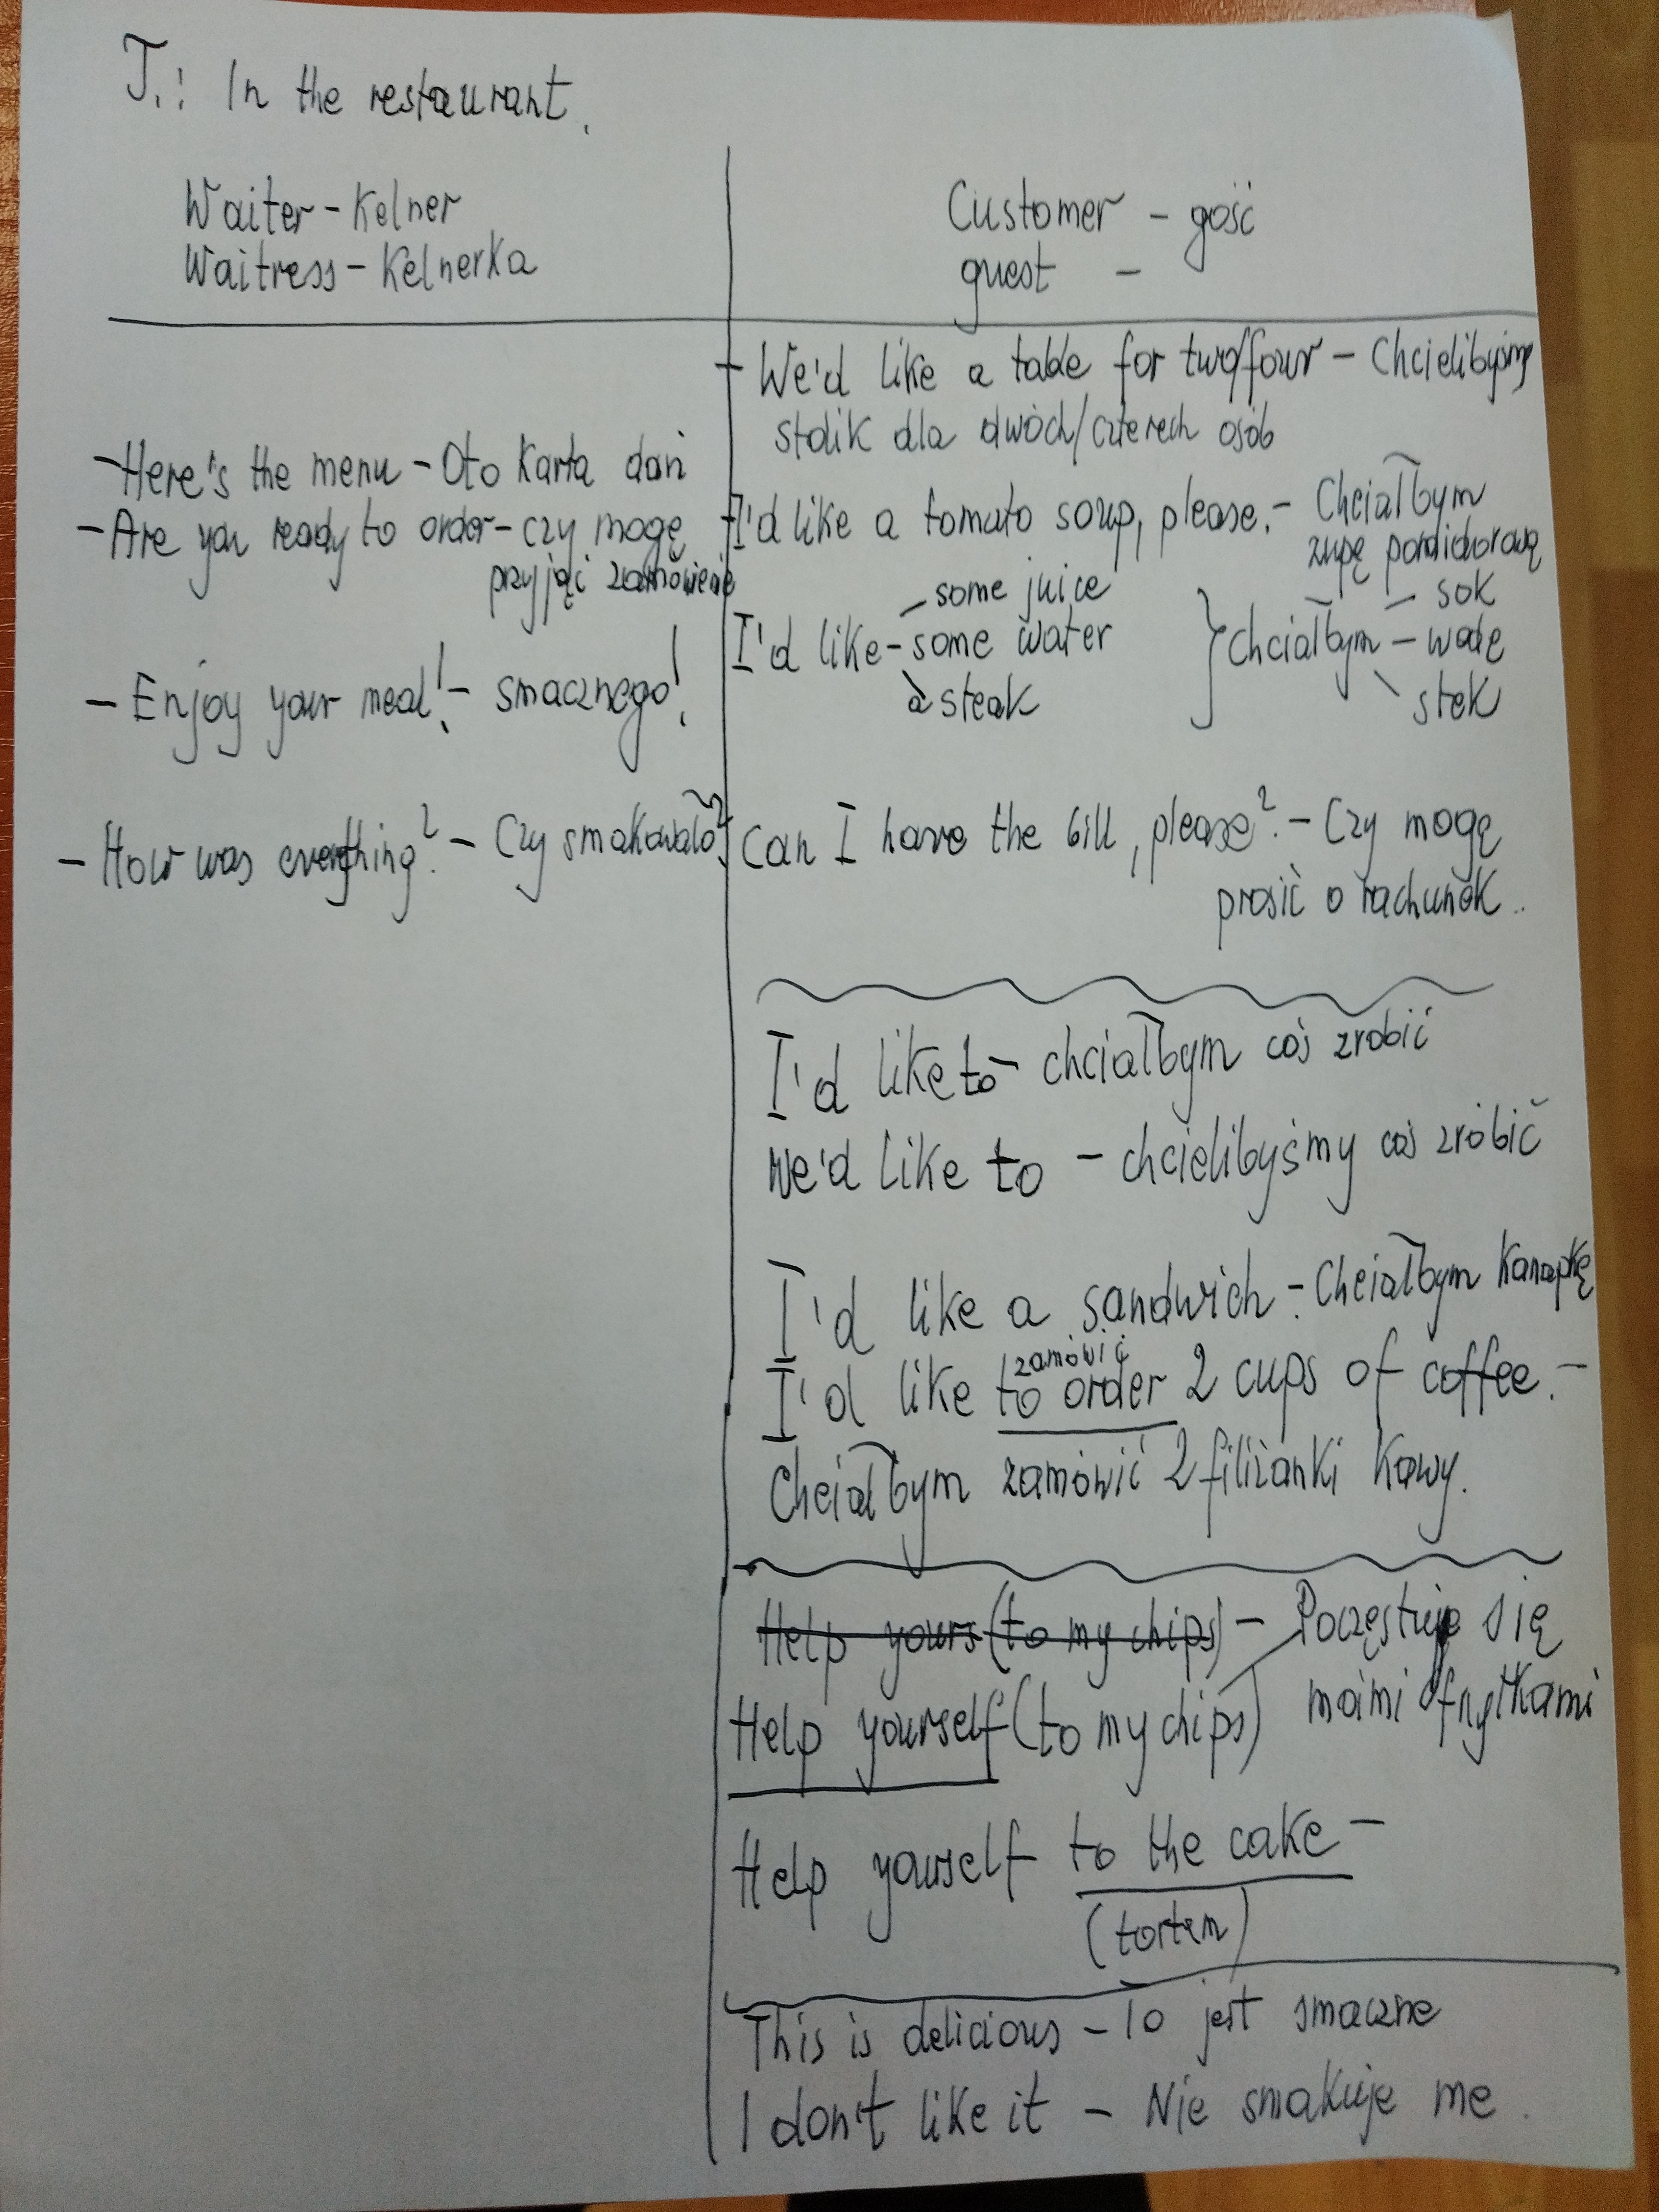 T.: In the restaurant.
Waiter - Kelner
Waitress - Kelnerka
Customer - gość
guest -
- Here's the menu - Oto Karta dań
- Are you ready to order - czy mogę
przyjąć zamówienie
- Enjoy your meal! - smacznego!
- How was everything? - Czy smakowało?
- We'd like a table for two/four - Chcielibyśmy
stolik dla dwóch/czterech osób
- I'd like a tomato soup, please. - Chciałbym
zupę pomidorową
- some juice - sok
I'd like - some water } chciałbym - wodę
a steak \ stek
- Can I have the bill, please? - Czy mogę
prosić o rachunek..
I'd like to - chciałbym coś zrobić
We'd like to - chcielibyśmy coś zrobić
I'd like a sandwich - Chciałbym Kanapkę
zamówić
I'd like to order 2 cups of coffee. -
Chciałbym zamówić 2 filiżanki Kawy.
Help yours (to my chips) - Poczęstuj się
Help yourself (to my chips) moimi frytkami
Help yourself to the cake -
(tortem)
This is delicious - To jest smaczne
I don't like it - Nie smakuje me.